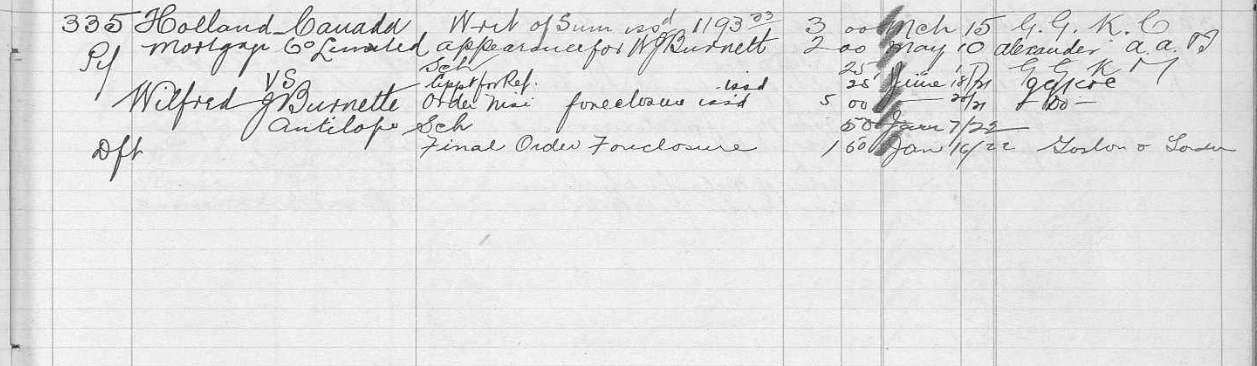 335 Holland-Canada Writ of Sum issd 1193 33 3 00 Mch 15 G. G. K. C
Plf Mortgage Co Limited appearance for W J Burnett 2 00 May 10 Alexander
Sch 25 G G K
vs Appt for Ref. issd 25 June 18/21
Wilfred J Burnette Order Nisi foreclosure issd 5 00 20/21 - Do -
Antilope Sch 50 Jan 7/22
Dft Final Order Foreclosure 1 50 Jan 16/22